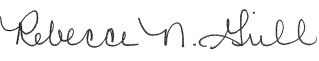 Rebecca N. Gill